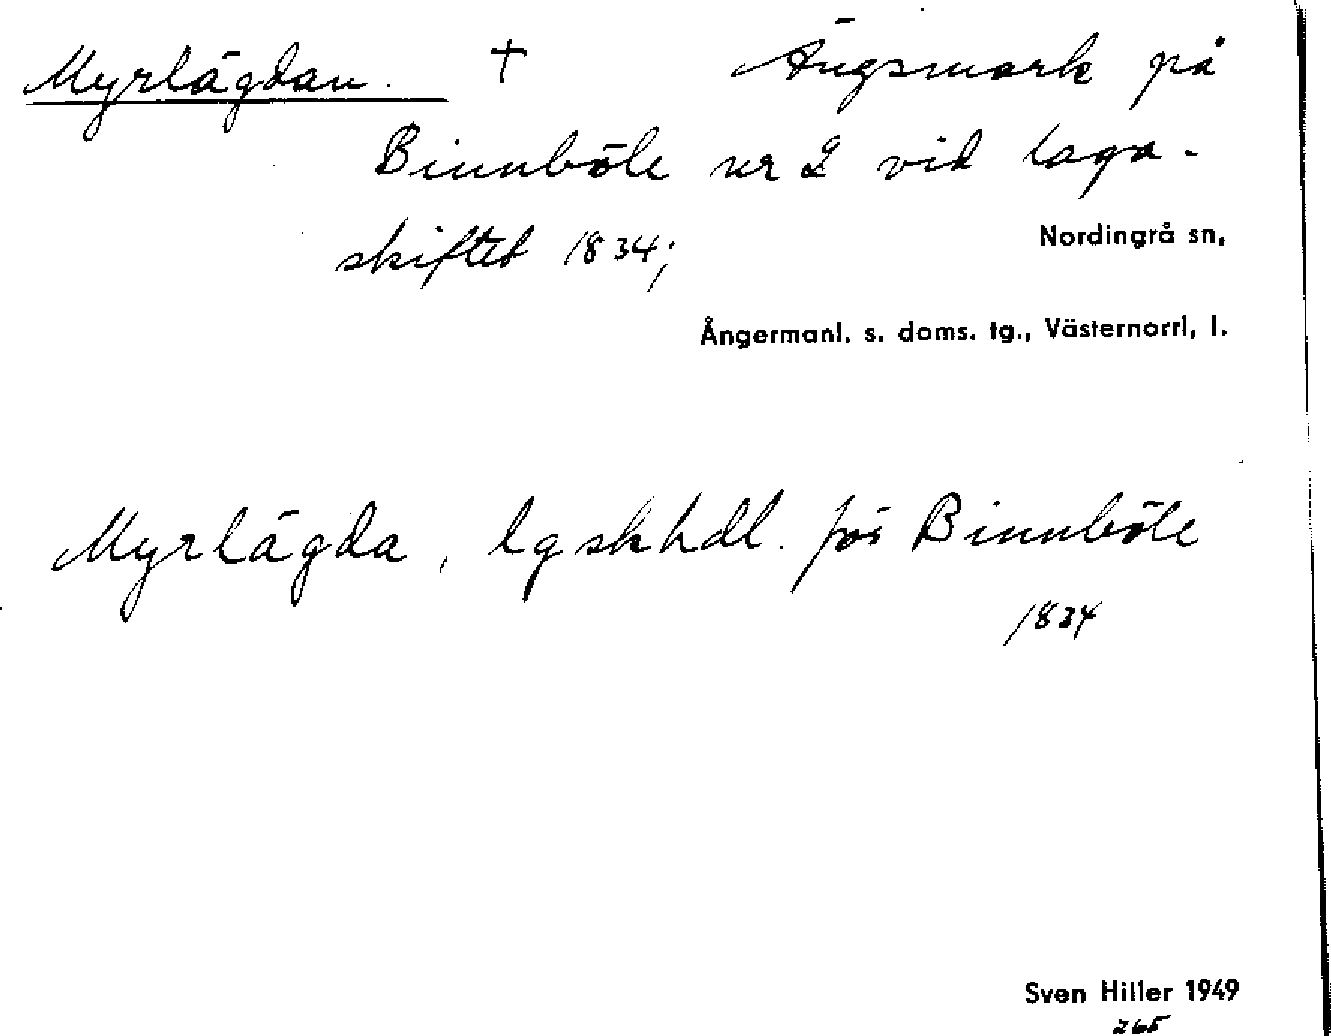 Myrlägdan. † Ängsmark på
Binnböle nr 2 vid laga-
skiftet 1834;
Nordingrå sn,
Ångermanl. s. doms. tg., Västernorrl, l.
Myrlägda, lgskhdl. för Binnböle
1834
Sven Hiller 1949
265